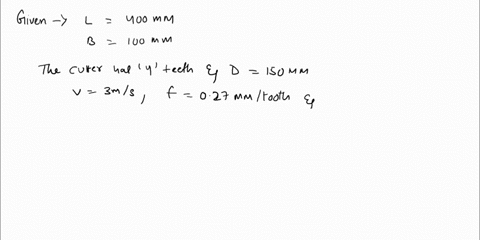 Given → L = 400 mm
B = 100 mm
The cuter has '4' teeth & D = 150 mm
V = 3m/s, f = 0.27 mm/tooth &